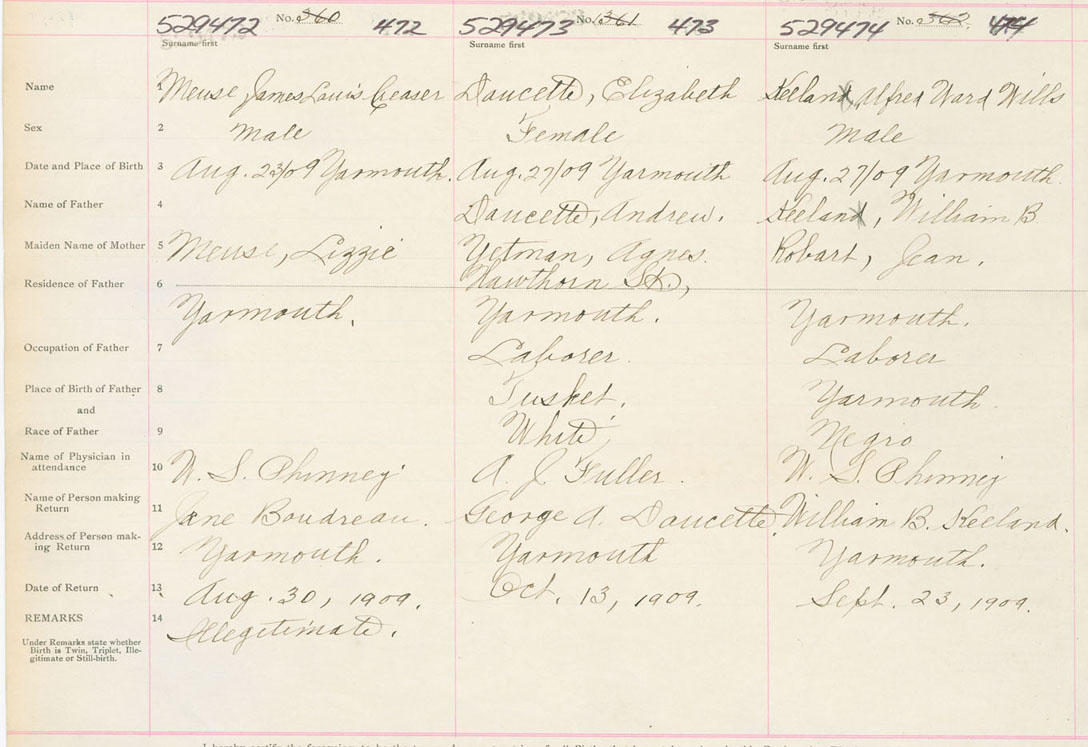 529472 No. 360 472 529473 No. 361 473 529474 No. 362 474
Surname first Surname first Surname first
Name 1 Meuse, James Louis Ceaser Doucette, Elizabeth Keeland, Alfred Ward Wills
Sex 2 Male Female Male
Date and Place of Birth 3 Aug. 23/09 Yarmouth. Aug. 27/09 Yarmouth Aug. 27/09 Yarmouth.
Name of Father 4 Doucette, Andrew. Keeland, William B
Maiden Name of Mother 5 Meuse, Lizzie Yetman, Agnes. Robart, Jean.
Residence of Father 6 Hawthorn St.,
Yarmouth. Yarmouth. Yarmouth.
Occupation of Father 7 Laborer. Laborer
Place of Birth of Father 8 Tusket. Yarmouth
and
Race of Father 9 White Negro
Name of Physician in
attendance 10 W. S. Phinney A. J. Fuller. W. S. Phinney
Name of Person making
Return 11 Jane Boudreau. George A. Doucette William B. Keeland.
Address of Person mak-
ing Return 12 Yarmouth. Yarmouth Yarmouth.
Date of Return 13 Aug. 30, 1909. Oct. 13, 1909. Sept. 23, 1909.
REMARKS 14 Illegitimate.
Under Remarks state whether
Birth is Twin, Triplet, Ille-
gitimate or Still-birth.